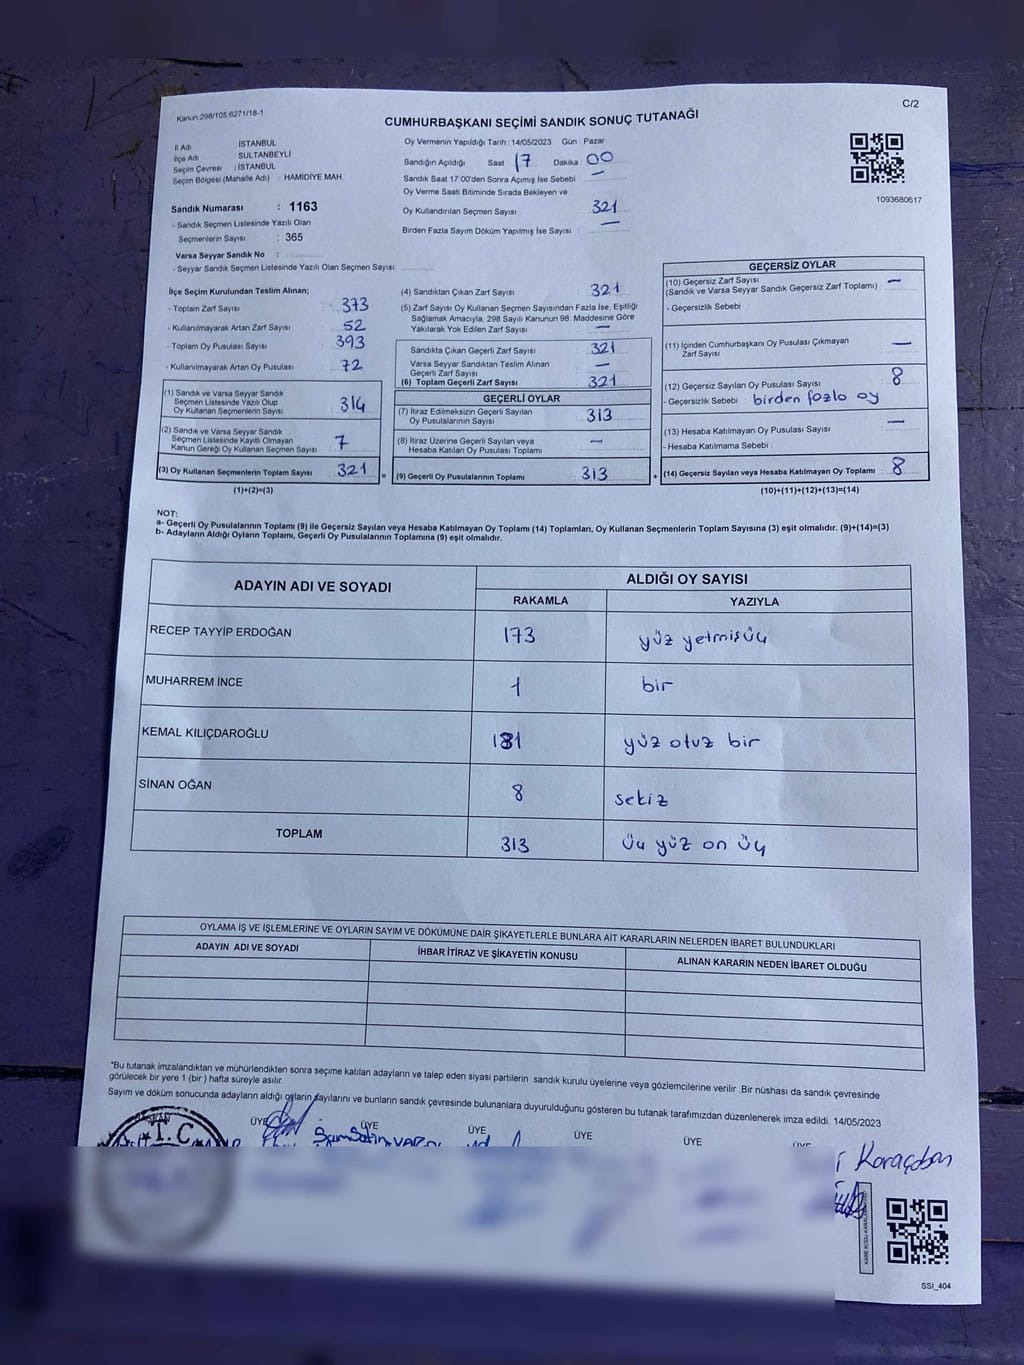 Kanun.298/105;6271/18-1
C/2
CUMHURBAŞKANI SEÇİMİ SANDIK SONUÇ TUTANAĞI
İl Adı İSTANBUL
İlçe Adı SULTANBEYLİ
Seçim Çevresi : İSTANBUL
Seçim Bölgesi (Mahalle Adı) : HAMİDİYE MAH.
Sandık Numarası : 1163
- Sandık Seçmen Listesinde Yazılı Olan
Seçmenlerin Sayısı : 365
Varsa Seyyar Sandık No :
- Seyyar Sandık Seçmen Listesinde Yazılı Olan Seçmen Sayısı:
Oy Vermenin Yapıldığı Tarih : 14/05/2023 Gün : Pazar
Sandığın Açıldığı Saat 17 Dakika : 00
Sandık Saat 17:00'den Sonra Açımış İse Sebebi —
Oy Verme Saati Bitiminde Sırada Bekleyen ve
Oy Kullandırılan Seçmen Sayısı 321
Birden Fazla Sayım Döküm Yapılmış İse Sayısı : —
1093680617
İlçe Seçim Kurulundan Teslim Alınan;
- Toplam Zarf Sayısı : 373
- Kullanılmayarak Artan Zarf Sayısı : 52
- Toplam Oy Pusulası Sayısı : 393
- Kullanılmayarak Artan Oy Pusulası : 72
(1) Sandık ve Varsa Seyyar Sandık
Seçmen Listesinde Yazılı Olup
Oy Kullanan Seçmenlerin Sayısı : 314
(2) Sandık ve Varsa Seyyar Sandık
Seçmen Listesinde Kayıtlı Olmayan
Kanun Gereği Oy Kullanan Seçmen Sayısı : 7
(3) Oy Kullanan Seçmenlerin Toplam Sayısı : 321
(1)+(2)=(3)
(4) Sandıktan Çıkan Zarf Sayısı : 321
(5) Zarf Sayısı Oy Kullanan Seçmen Sayısından Fazla İse, Eşitliği
Sağlamak Amacıyla, 298 Sayılı Kanunun 98. Maddesine Göre
Yakılarak Yok Edilen Zarf Sayısı : —
Sandıkta Çıkan Geçerli Zarf Sayısı : 321
Varsa Seyyar Sandıktan Teslim Alınan
Geçerli Zarf Sayısı : —
(6) Toplam Geçerli Zarf Sayısı : 321
GEÇERLİ OYLAR
(7) İtiraz Edilmeksizin Geçerli Sayılan
Oy Pusulalarının Sayısı : 313
(8) İtiraz Üzerine Geçerli Sayılan veya
Hesaba Katılan Oy Pusulası Toplamı : —
= (9) Geçerli Oy Pusulalarının Toplamı : 313 +
GEÇERSİZ OYLAR
(10) Geçersiz Zarf Sayısı
(Sandık ve Varsa Seyyar Sandık Geçersiz Zarf Toplamı) : —
- Geçersizlik Sebebi :
(11) İçinden Cumhurbaşkanı Oy Pusulası Çıkmayan
Zarf Sayısı : —
(12) Geçersiz Sayılan Oy Pusulası Sayısı : 8
- Geçersizlik Sebebi : birden fazla oy
(13) Hesaba Katılmayan Oy Pusulası Sayısı : —
- Hesaba Katılmama Sebebi :
(14) Geçersiz Sayılan veya Hesaba Katılmayan Oy Toplamı : 8
(10)+(11)+(12)+(13)=(14)
NOT:
a- Geçerli Oy Pusulalarının Toplamı (9) ile Geçersiz Sayılan veya Hesaba Katılmayan Oy Toplamı (14) Toplamları, Oy Kullanan Seçmenlerin Toplam Sayısına (3) eşit olmalıdır. (9)+(14)=(3)
b- Adayların Aldığı Oyların Toplamı, Geçerli Oy Pusulalarının Toplamına (9) eşit olmalıdır.
ADAYIN ADI VE SOYADI ALDIĞI OY SAYISI
RAKAMLA YAZIYLA
RECEP TAYYİP ERDOĞAN 173 yüz yetmişüç
MUHARREM İNCE 1 bir
KEMAL KILIÇDAROĞLU 131 yüz otuz bir
SİNAN OĞAN 8 sekiz
TOPLAM 313 üç yüz on üç
OYLAMA İŞ VE İŞLEMLERİNE VE OYLARIN SAYIM VE DÖKÜMÜNE DAİR ŞİKAYETLERLE BUNLARA AİT KARARLARIN NELERDEN İBARET BULUNDUKLARI
ADAYIN ADI VE SOYADI İHBAR İTİRAZ VE ŞİKAYETİN KONUSU ALINAN KARARIN NEDEN İBARET OLDUĞU
*Bu tutanak imzalandıktan ve mühürlendikten sonra seçime katılan adayların ve talep eden siyasi partilerin sandık kurulu üyelerine veya gözlemcilerine verilir. Bir nüshası da sandık çevresinde
görülecek bir yere 1 (bir) hafta süreyle asılır.
Sayım ve döküm sonucunda adayların aldığı oyların sayılarını ve bunların sandık çevresinde bulunanlara duyurulduğunu gösteren bu tutanak tarafımızdan düzenlenerek imza edildi. 14/05/2023
ÜYE ÜYE ÜYE ÜYE ÜYE
T.C.
SSI_404